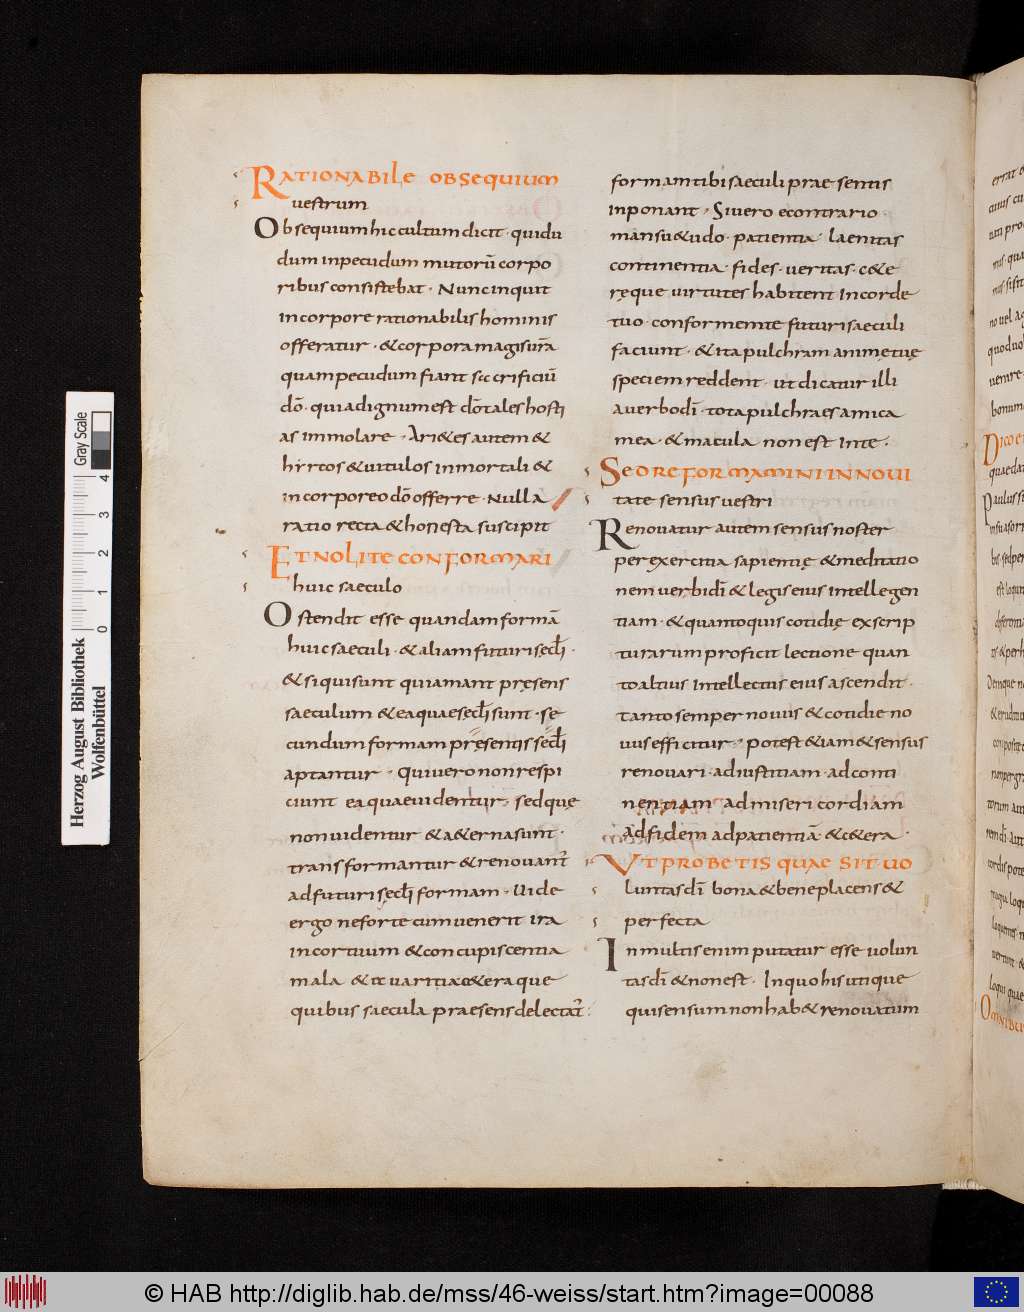 RATIONABILE OBSEQUIUM
uestrum
Obsequium hic cultum dicit · quidu
dum inpecudum mutorū corpo
ribus consistebat · Nunc inquit
incorpore rationabilis hominis
offeratur · & corpora magis ur̄a
quam pecudum fiant sacrificiū
dō · quia dignum est dō tales hosti
as immolare · Ari&es autem &
hyrcos & uitulos inmortali &
incorporeo dō offerre · Nulla
ratio recta & honesta suscipit
ET NOLITE CONFORMARI
huic saeculo
Ostendit esse quandam formā
huic saeculi · & aliam futuri secl̄i ·
& siqui sunt qui amant pręsens
saeculum & ea quae secl̄i sunt · se
cundum formam pręsentis secl̄i
aptantur · Qui uero non respi
ciunt ea quae uidentur · sed quę
non uidentur & a&erna sunt ·
transformantur & renouant̄
ad futuri secl̄i formam · Uide
ergo ne forte cum uenerit ira
in cor tuum & concupiscentia
mala & auaritia c&eraque
quibus saecula praesens delectat̄ :
formam tibi saeculi prae sentis
inponant · Si uero econtrario
mansu&udo · patientia · laenitas
continentia · fides · ueritas · c&e
ręque uirtutes habitent in corde
tuo · conformem te futuri saeculi
faciunt · & ita pulchram animę tuę
speciem reddent · ut dicatur illi
auerbo dī · tota pulchra es amica
mea · & macula non est in te ·
SED REFORMAMINI IN NOUI
tate sensus uestri
Renouatur autem sensus noster
per exercitia sapientię & meditatio
nem uerbi dī & legis eius intellegen
tiam · & quanto quis cotidię ex scrip
turarum proficit lectione quan
to altius intellectus eius ascendit ·
tanto semper nouus & cotidie no
uus efficitur · potest &iam & sensus
renouari · ad iustitiam · ad conti
nentiam ad misericordiam
ad fidem ad patientiā & c&era ·
UT PROBETIS QUAE SIT UO
luntas dī bona & beneplacens &
perfecta
In multis enim putatur esse uolun
tas dī & non est · In quo his utique
qui sensum non hab& renouatum
Herzog August Bibliothek
Wolfenbüttel
Gray Scale
0 1 2 3 4
© HAB http://diglib.hab.de/mss/46-weiss/start.htm?image=00088